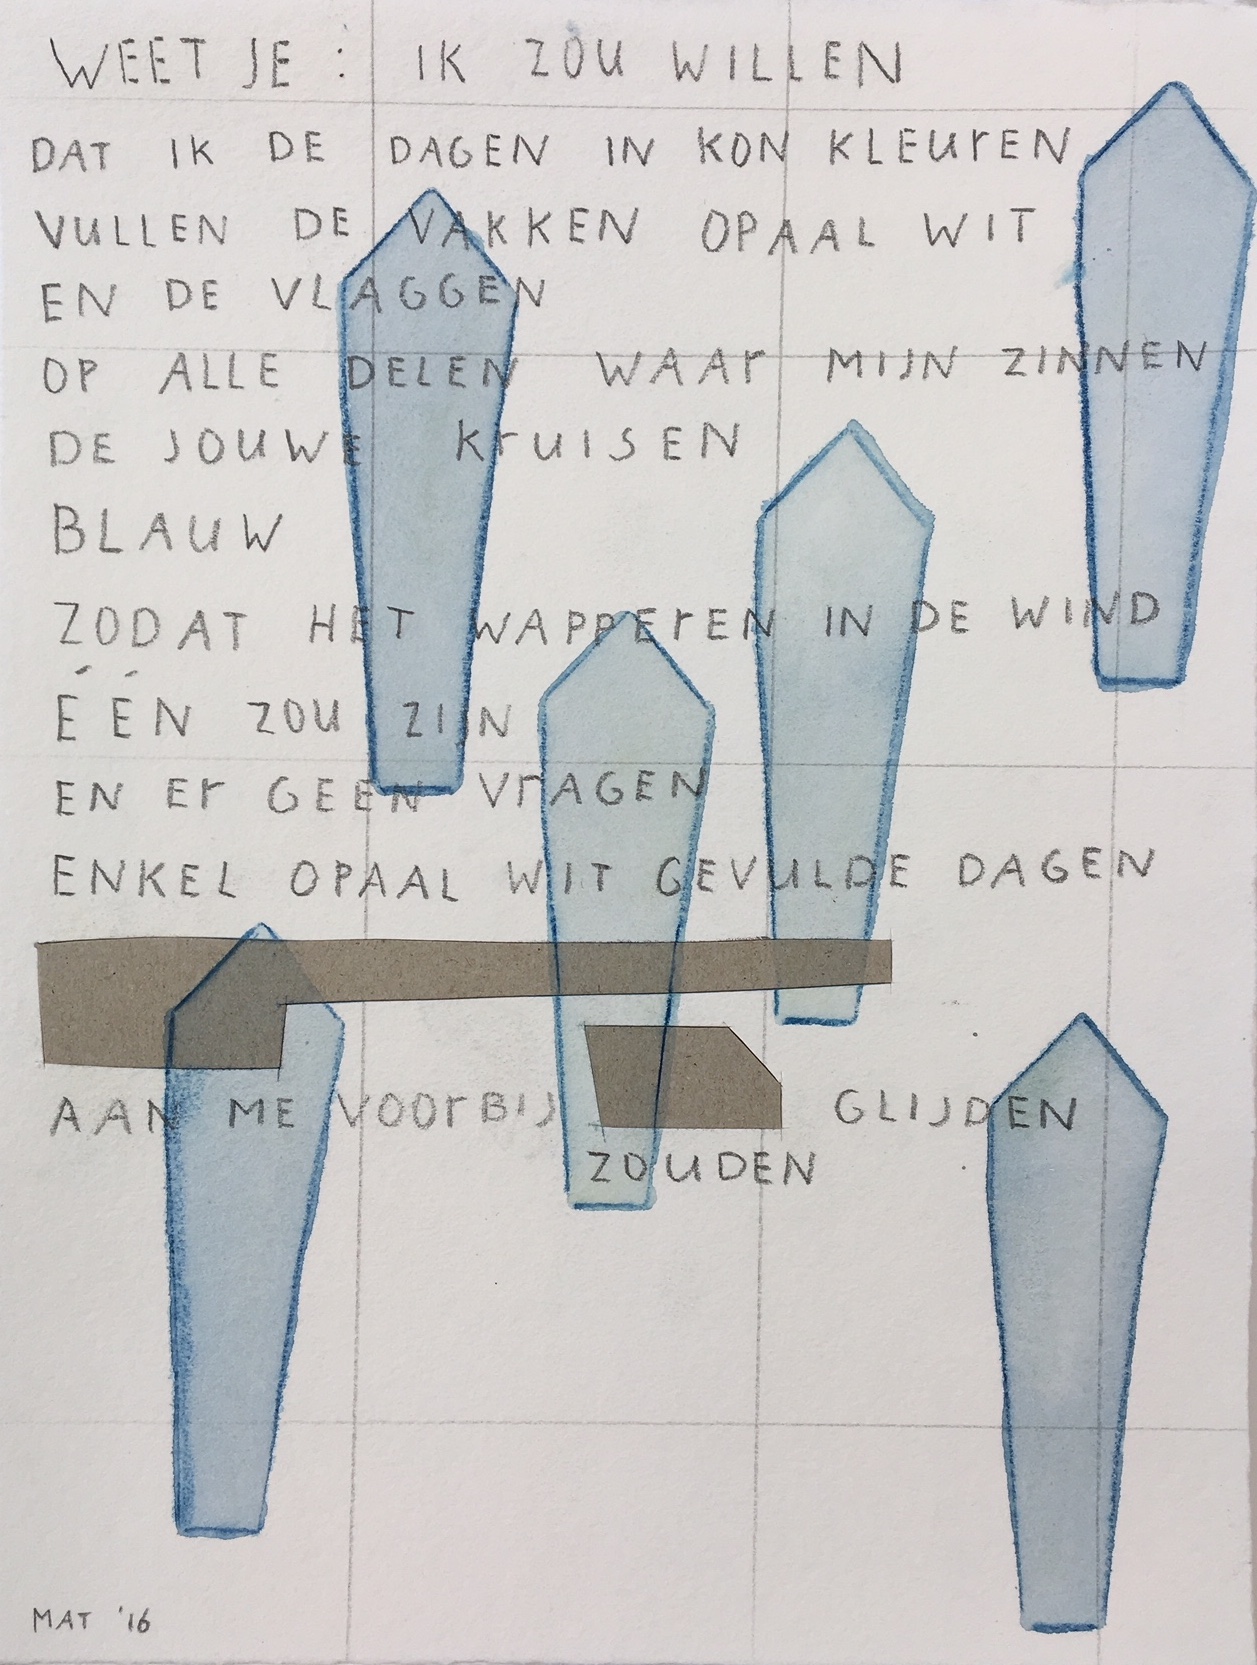 WEET JE : IK ZOU WILLEN
DAT IK DE DAGEN IN KON KLEUrEN
VULLEN DE VAKKEN OPAAL WIT
EN DE VLAGGEN
OP ALLE DELEN WAAr MIJN ZINNEN
DE JOUWE KrUISEN
BLAUW
ZODAT HET WAPPErEN IN DE WIND
ÉÉN ZOU ZIJN
EN Er GEEN VrAGEN
ENKEL OPAAL WIT GEVULDE DAGEN
AAN ME VOOrBIJ GLIJDEN
ZOUDEN
MAT '16